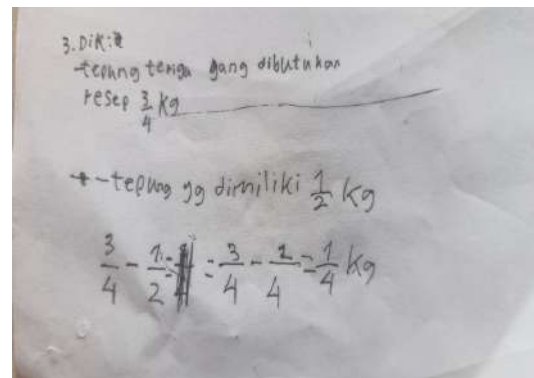 3. Dik:
-tepung terigu yang dibutuhan
resep 3/4 kg
-tepung yg dimiliki 1/2 kg
3/4 - 1/2 = = 3/4 - 2/4 = 1/4 kg